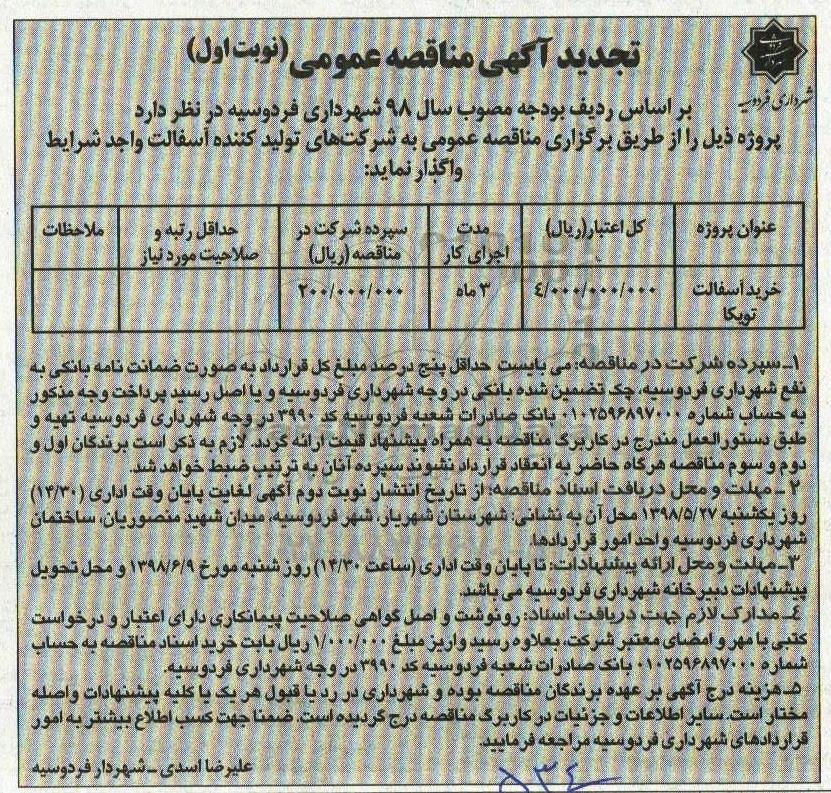 تجدید آگهی مناقصه عمومی (نوبت اول)
شهرداری فردوسیه
بر اساس ردیف بودجه مصوب سال ۹۸ شهرداری فردوسیه در نظر دارد
پروژه ذیل را از طریق برگزاری مناقصه عمومی به شرکت‌های تولید کننده آسفالت واجد شرایط
واگذار نماید:
عنوان پروژه کل اعتبار(ریال) مدت اجرای کار سپرده شرکت در مناقصه (ریال) حداقل رتبه و صلاحیت مورد نیاز ملاحظات
خرید آسفالت توپکا ۴/۰۰۰/۰۰۰/۰۰۰ ۳ ماه ۲۰۰/۰۰۰/۰۰۰
۱ـ سپرده شرکت در مناقصه: می بایست حداقل پنج درصد مبلغ کل قرارداد به صورت ضمانت نامه بانکی به
نفع شهرداری فردوسیه، چک تضمین شده بانکی در وجه شهرداری فردوسیه و یا اصل رسید پرداخت وجه مذکور
به حساب شماره ۰۱۰۲۵۹۶۸۹۷۰۰۰ بانک صادرات شعبه فردوسیه کد ۳۹۹۰ در وجه شهرداری فردوسیه تهیه و
طبق دستورالعمل مندرج در کاربرگ مناقصه به همراه پیشنهاد قیمت ارائه گردد. لازم به ذکر است برندگان اول و
دوم و سوم مناقصه هرگاه حاضر به انعقاد قرارداد نشوند سپرده آنان به ترتیب ضبط خواهد شد.
۲ ـ مهلت و محل دریافت اسناد مناقصه: از تاریخ انتشار نوبت دوم آگهی لغایت پایان وقت اداری (۱۴/۳۰)
روز یکشنبه ۱۳۹۸/۵/۲۷ محل آن به نشانی: شهرستان شهریار، شهر فردوسیه، میدان شهید منصوریان، ساختمان
شهرداری فردوسیه واحد امور قراردادها.
۳ـ مهلت و محل ارائه پیشنهادات: تا پایان وقت اداری (ساعت ۱۴/۳۰) روز شنبه مورخ ۱۳۹۸/۶/۹ و محل تحویل
پیشنهادات دبیرخانه شهرداری فردوسیه می باشد.
۴ـ مدارک لازم جهت دریافت اسناد: رونوشت و اصل گواهی صلاحیت پیمانکاری دارای اعتبار و درخواست
کتبی با مهر و امضای معتبر شرکت، بعلاوه رسید واریز مبلغ ۱/۰۰۰/۰۰۰ ریال بابت خرید اسناد مناقصه به حساب
شماره ۰۱۰۲۵۹۶۸۹۷۰۰۰ بانک صادرات شعبه فردوسیه کد ۳۹۹۰ در وجه شهرداری فردوسیه.
۵ـ هزینه درج آگهی بر عهده برندگان مناقصه بوده و شهرداری در رد یا قبول هر یک یا کلیه پیشنهادات واصله
مختار است. سایر اطلاعات و جزئیات در کاربرگ مناقصه درج گردیده است. ضمنا جهت کسب اطلاع بیشتر به امور
قراردادهای شهرداری فردوسیه مراجعه فرمایید.
علیرضا اسدی ـ شهردار فردوسیه